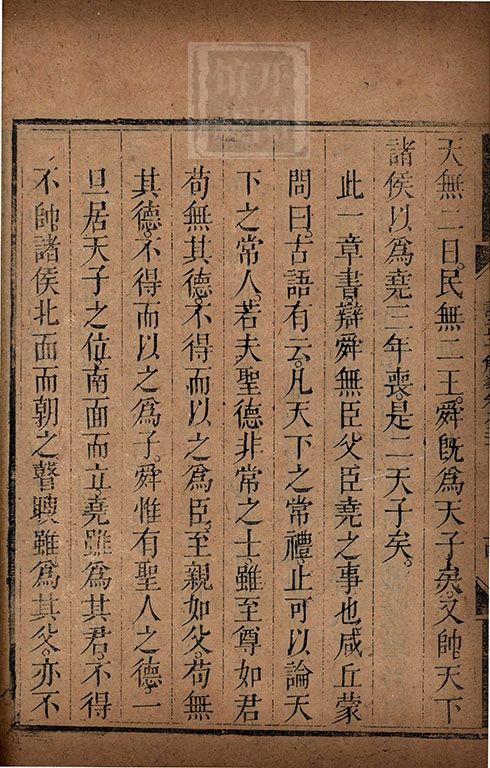 天無二日。民無二王。舜既爲天子矣。又帥天下
諸侯以爲堯三年喪。是二天子矣。
此一章書辯舜無臣父臣堯之事也。咸丘蒙
問曰。古語有云。凡天下之常禮。止可以論天
下之常人。若夫聖德非常之士。雖至尊如君
苟無其德。不得而以之爲臣。至親如父。苟無
其德。不得而以之爲子。舜惟有聖人之德。一
旦居天子之位。南面而立。堯雖爲其君。不得
不帥諸侯北面而朝之。瞽瞍雖爲其父。亦不